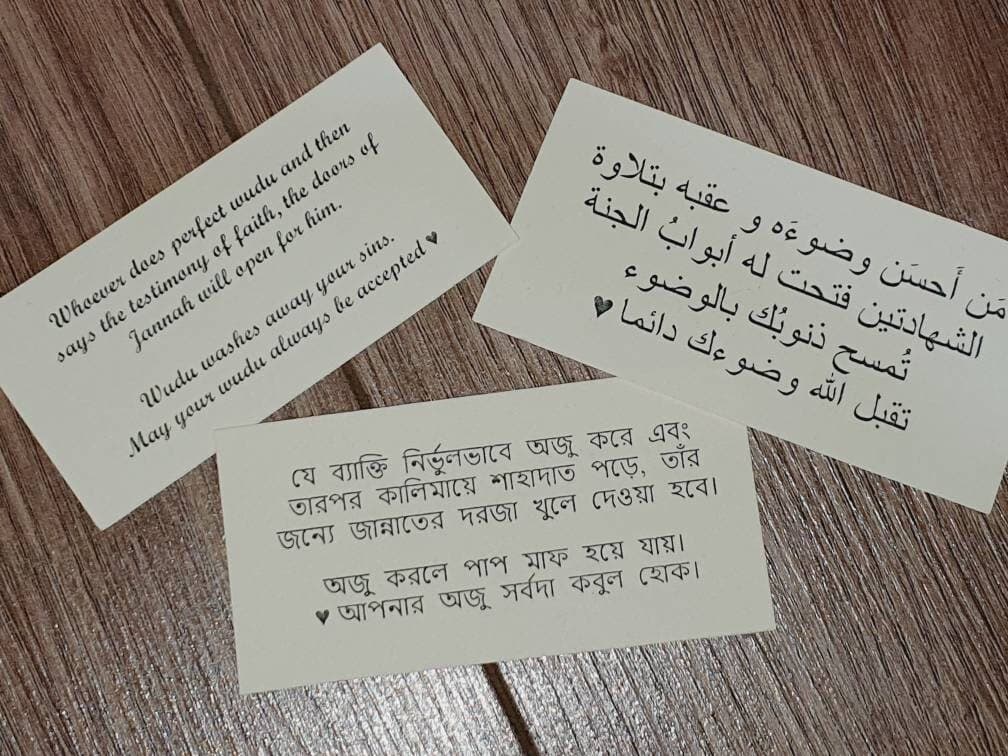 Whoever does perfect wudu and then
says the testimony of faith, the doors of
Jannah will open for him.
Wudu washes away your sins.
May your wudu always be accepted ♥
مَن أَحسَن وضوءَه و عقبه بتلاوة
الشهادتين فتحت له أبوابُ الجنة
تُمسح ذنوبُك بالوضوء
تقبل الله وضوءك دائما ♥
যে ব্যাক্তি নির্ভুলভাবে অজু করে এবং
তারপর কালিমায়ে শাহাদাত পড়ে, তাঁর
জন্যে জান্নাতের দরজা খুলে দেওয়া হবে।
অজু করলে পাপ মাফ হয়ে যায়।
♥ আপনার অজু সর্বদা কবুল হোক।